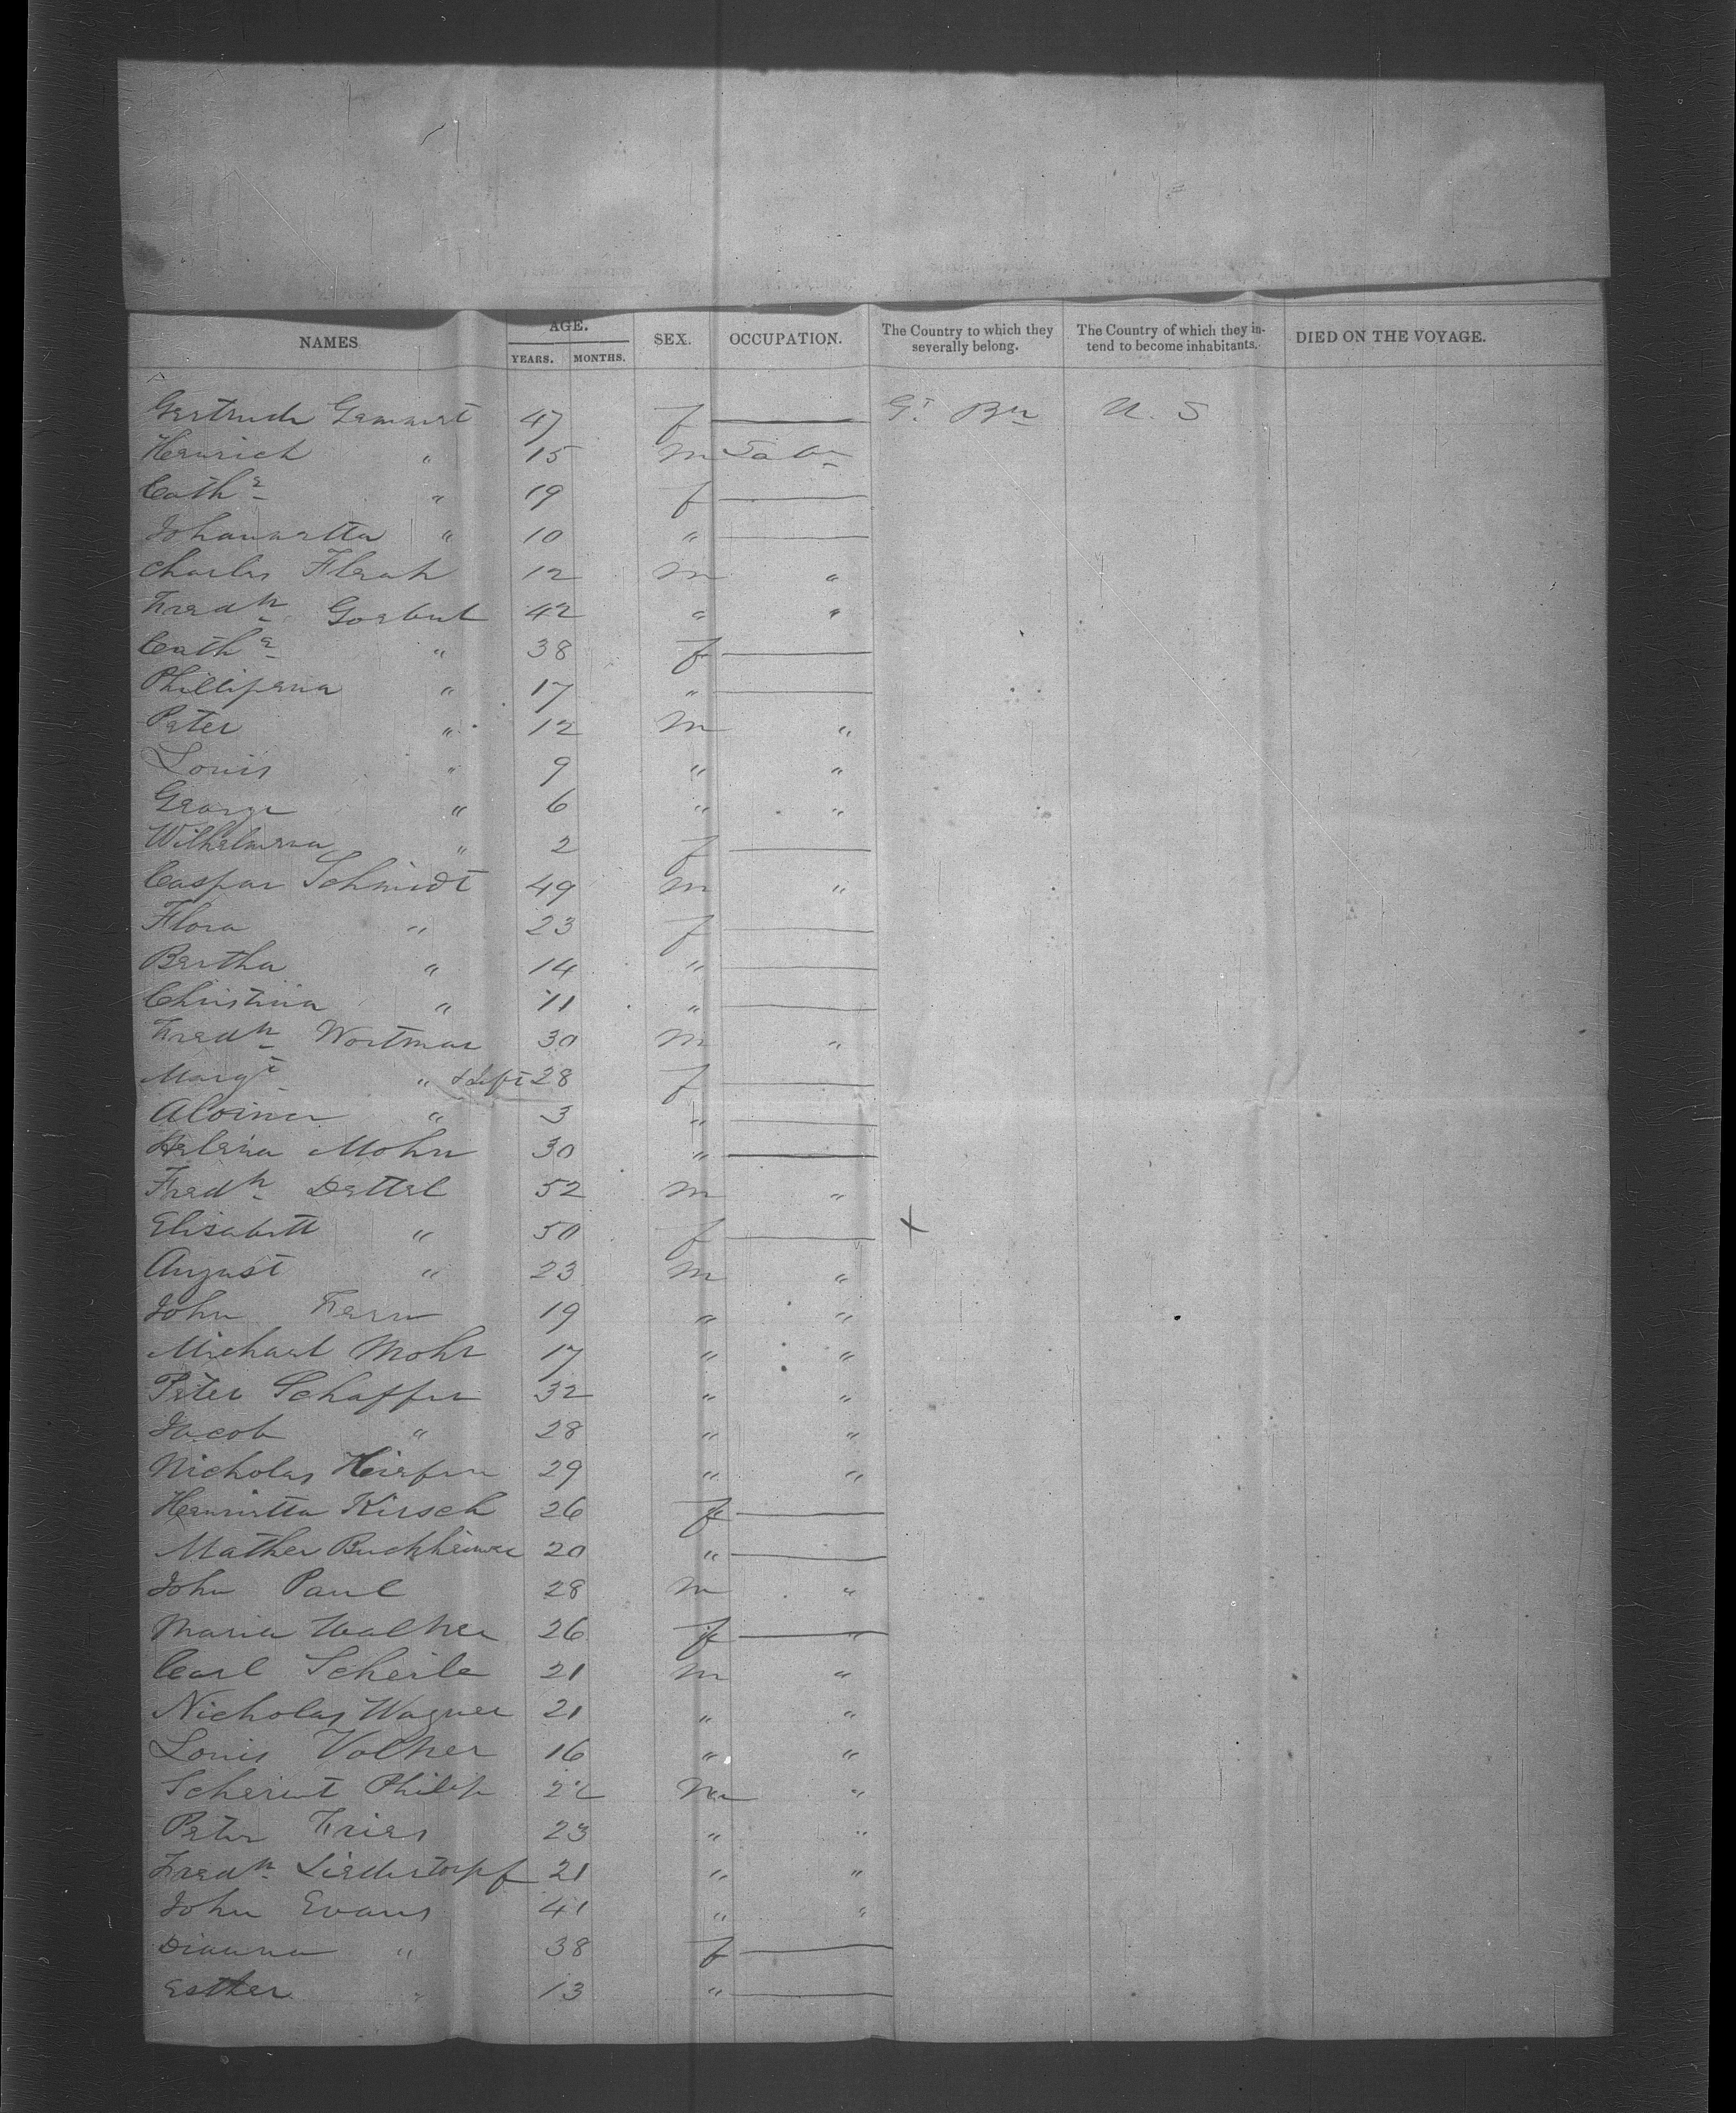 NAMES AGE. YEARS. MONTHS. SEX. OCCUPATION. The Country to which they severally belong. The Country of which they intend to become inhabitants. DIED ON THE VOYAGE.
Gertrude 47 f — Gt Brn U. S
Henrich " 15 m Labr
Cathe " 19 f —
Johannetta " 10 " —
Charles 12 m "
Fredk 42 " "
Cathe " 38 f —
Phillipena " 17 " —
Peter " 12 m "
Louis " 9 " "
George " 6 " "
Wilhelmena " 2 f —
Caspar Schmidt 49 m "
Flora " 23 f —
Bertha " 14 " —
Christina " 11 " —
Fredk Wortman 30 m "
Margt " 28 f —
" 3 " —
Helena Mohn 30 " —
Fredk Dettel 52 m "
Elisabett " 50 f — X
August " 23 m "
John 19 " "
Michael Mohr 17 " "
Peter Schaffer 32 " "
Jacob " 28 " "
Nicholas 29 " "
Henrietta Kirsch 26 f —
Mather 20 " —
John Paul 28 m "
Maria Walker 26 f —
Carl Scheile 21 m "
Nicholas Wagner 21 " "
Louis Volker 16 " "
Philip m "
Peter Fries 23 " "
Fredk 21 " "
John Evans 41 " "
Dianna " 38 f —
Esther " 13 " —